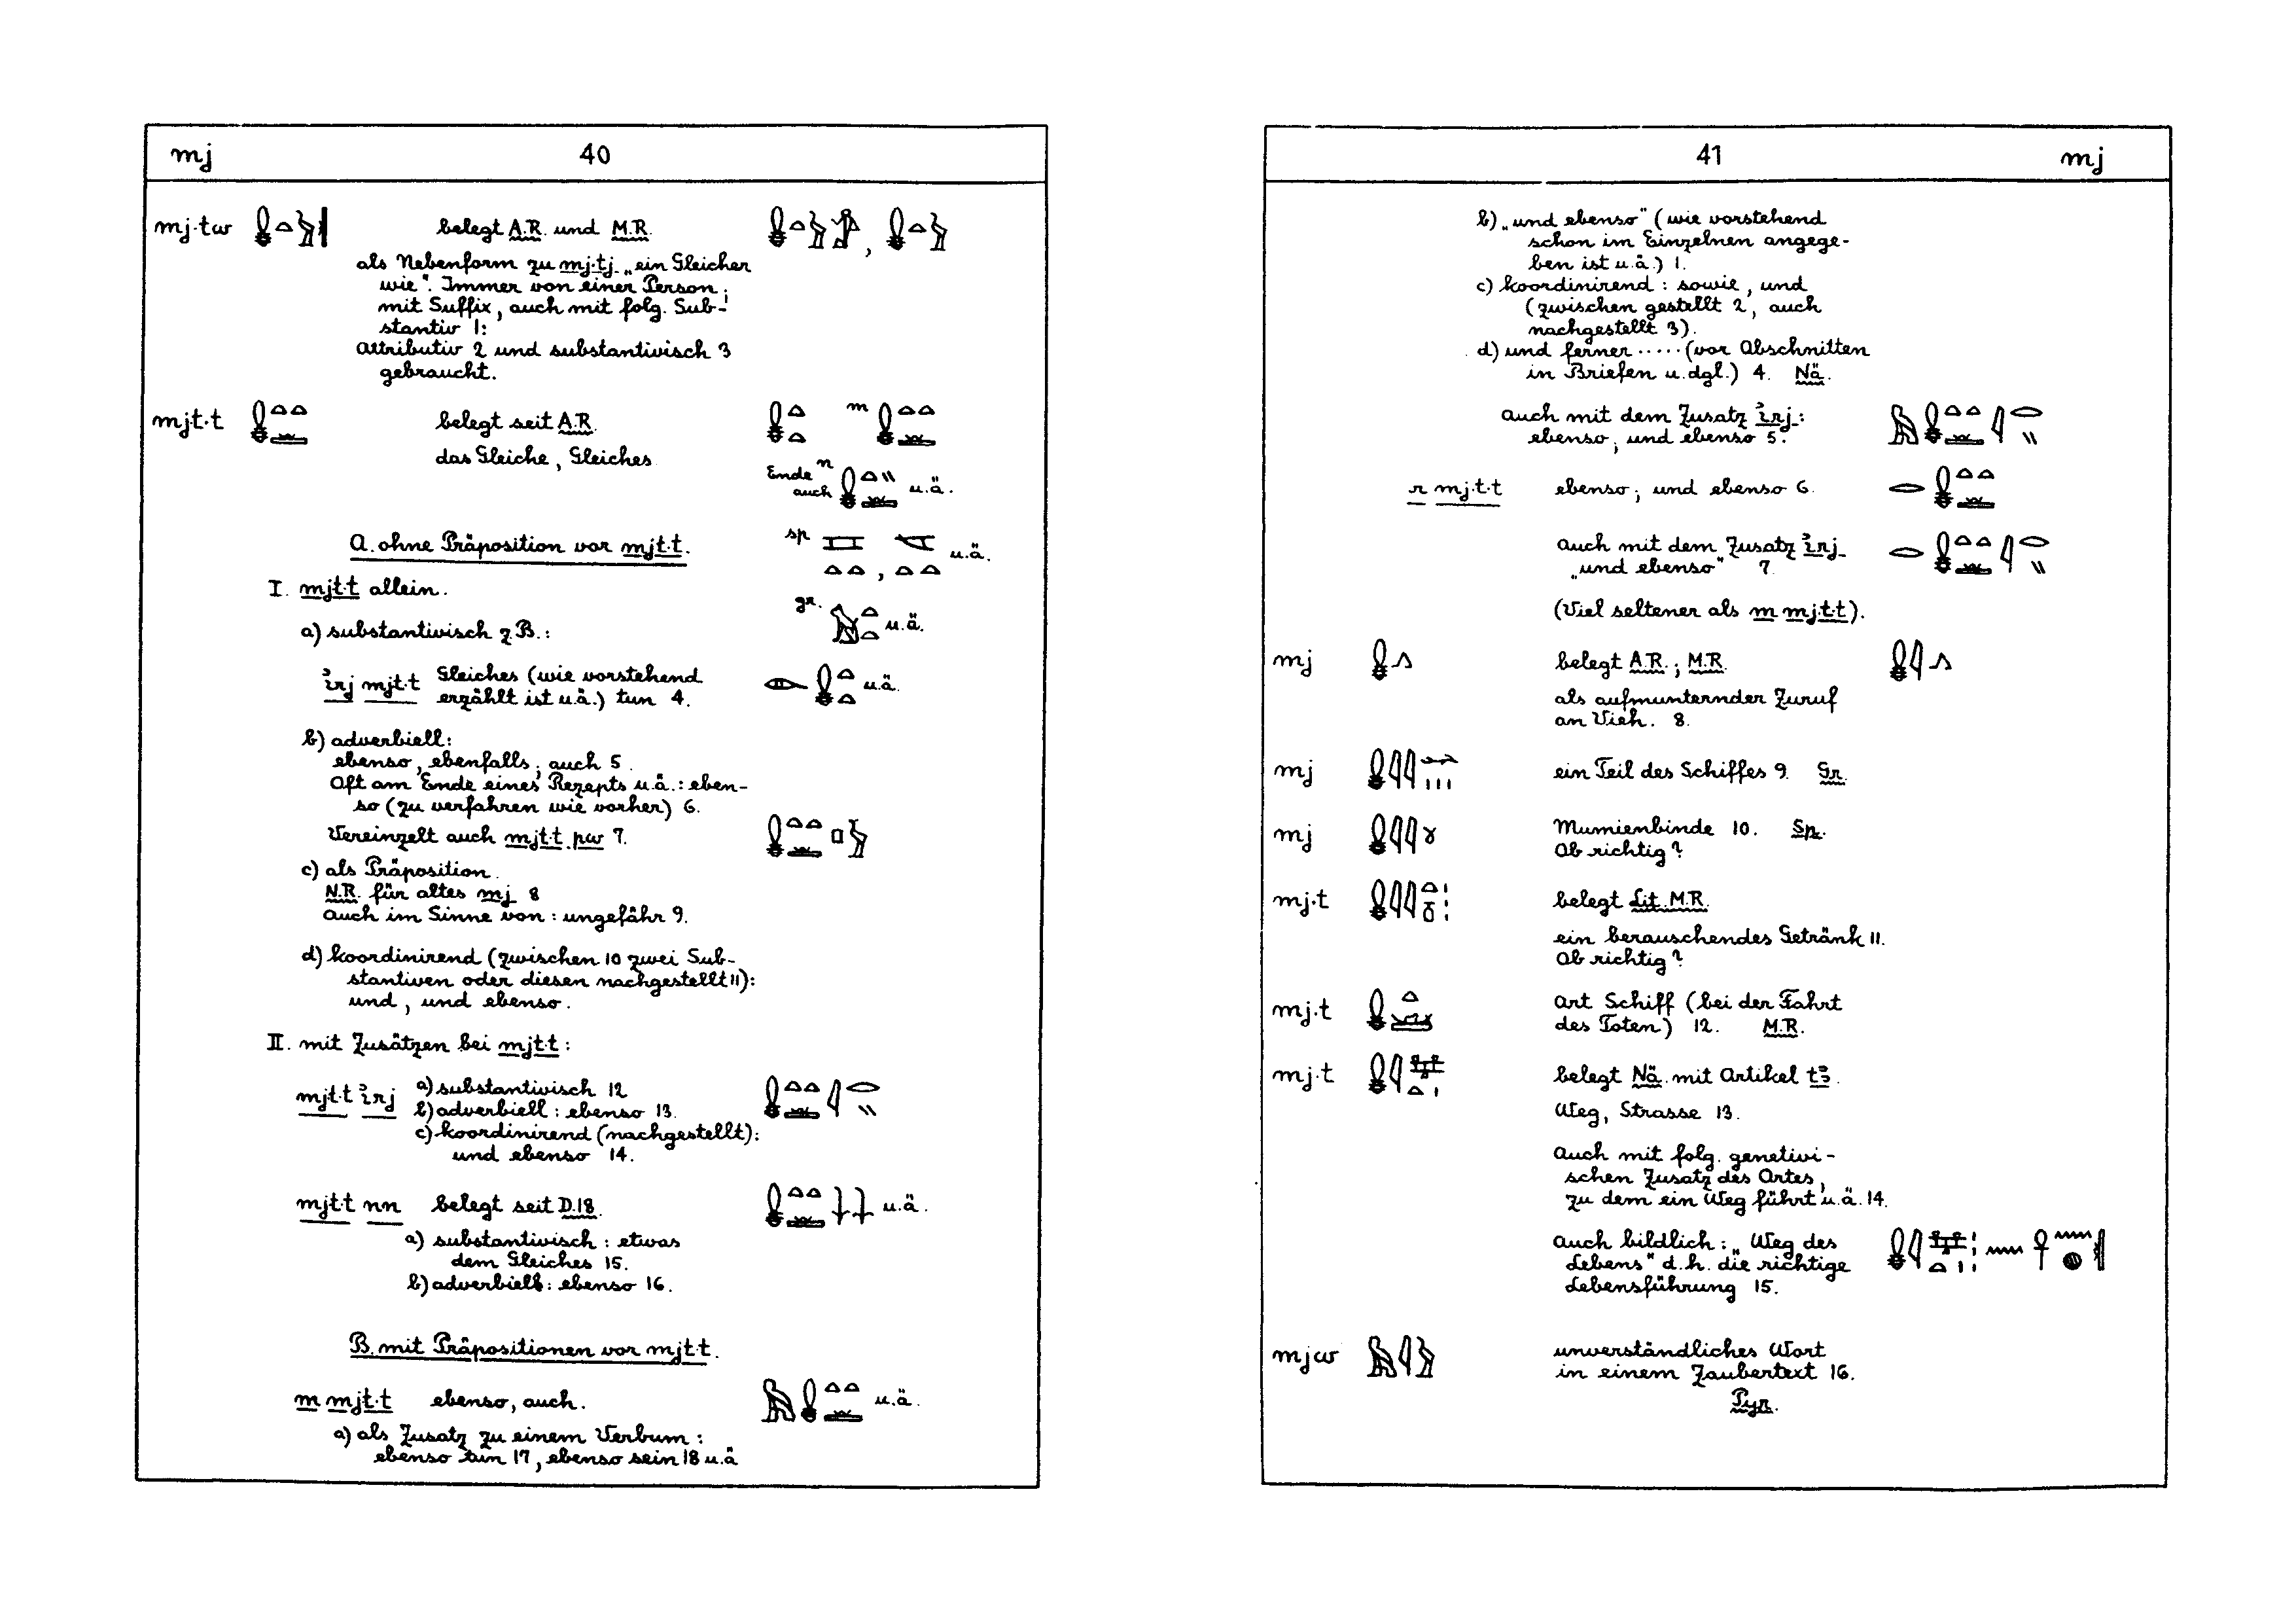 mj 40
mj·tw belegt A.R. und M.R.
als Nebenform zu mj·tj „ein Gleicher
wie“. Immer von einer Person;
mit Suffix, auch mit folg. Sub-
stantiv 1:
attributiv 2 und substantivisch 3
gebraucht.
mjt·t belegt seit A.R. m
das Gleiche, Gleiches
Ende n
auch u.ä.
A. ohne Präposition vor mjt·t. sp , u.ä.
I. mjt·t allein.
gr. u.ä.
a) substantivisch z.B.:
ı͗rj mjt·t Gleiches (wie vorstehend
erzählt ist u.ä.) tun 4. u.ä.
b) adverbiell:
ebenso, ebenfalls; auch 5.
Oft am Ende eines Rezepts u.ä.: eben-
so (zu verfahren wie vorher) 6.
Vereinzelt auch mjt·t pw 7.
c) als Präposition.
N.R. für altes mj 8
auch im Sinne von: ungefähr 9.
d) koordinirend (zwischen 10 zwei Sub-
stantiven oder diesen nachgestellt 11):
und, und ebenso.
II. mit Zusätzen bei mjt·t:
mjt·t ı͗rj a) substantivisch 12
b) adverbiell: ebenso 13.
c) koordinirend (nachgestellt):
und ebenso 14.
mjt·t nn belegt seit D.18. u.ä.
a) substantivisch: etwas
dem Gleiches 15.
b) adverbiell: ebenso 16.
B. mit Präpositionen vor mjt·t.
m mjt·t ebenso, auch. u.ä.
a) als Zusatz zu einem Verbum:
ebenso tun 17, ebenso sein 18 u.ä
41 mj
b) „und ebenso“ (wie vorstehend
schon im Einzelnen angege-
ben ist u.ä.) 1.
c) koordinirend: sowie, und
(zwischen gestellt 2, auch
nachgestellt 3).
d) und ferner ····· (vor Abschnitten
in Briefen u.dgl.) 4. Nä.
auch mit dem Zusatz ı͗rj:
ebenso; und ebenso 5.
r mj·t·t ebenso; und ebenso 6.
auch mit dem Zusatz ı͗rj
„und ebenso“ 7.
(Viel seltener als m mj·t·t).
mj belegt A.R.; M.R.
als aufmunternder Zuruf
an Vieh. 8.
mj ein Teil des Schiffes 9. Gr.
mj Mumienbinde 10. Sp.
Ob richtig?
mj·t belegt Lit. M.R.
ein berauschendes Getränk 11.
Ob richtig?
mj·t Art Schiff (bei der Fahrt
des Toten) 12. M.R.
mj·t belegt Nä. mit Artikel tꜣ.
Weg, Strasse 13.
Auch mit folg. genetivi-
schen Zusatz des Ortes,
zu dem ein Weg führt u.ä. 14.
auch bildlich: „Weg des
Lebens“ d.h. die richtige
Lebensführung 15.
mjw unverständliches Wort
in einem Zaubertext 16.
Pyr.